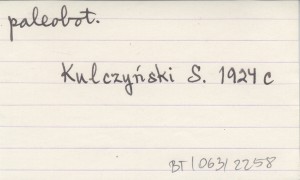 paleobot.
Kulczyński S. 1924 c
BT/063/2258